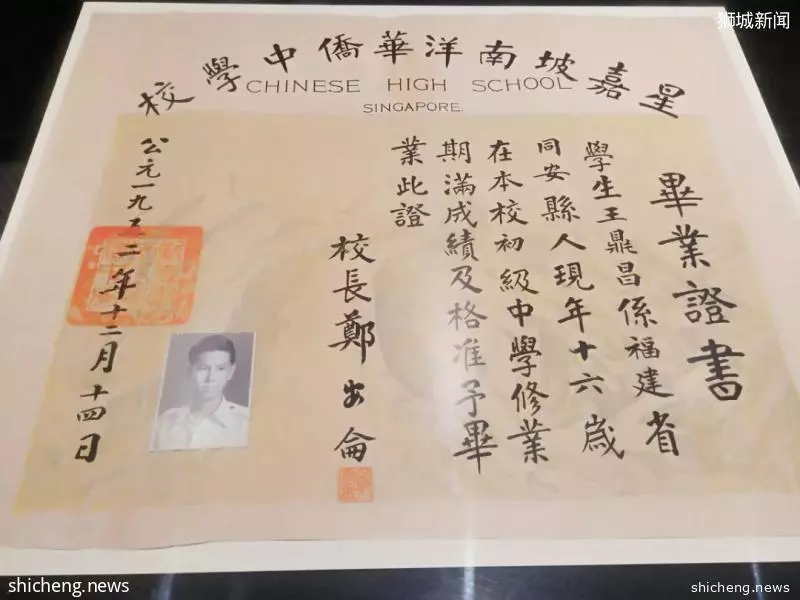 狮城新闻
shicheng.news
星嘉坡南洋華僑中學校
CHINESE HIGH SCHOOL
SINGAPORE.
畢業證書
學生王鼎昌係福建省
同安縣人現年十六歲
在本校初級中學修業
期滿成績及格准予畢
業此證
校長鄭安侖
公元一九五二年十二月十四日
shicheng.news
shicheng.news